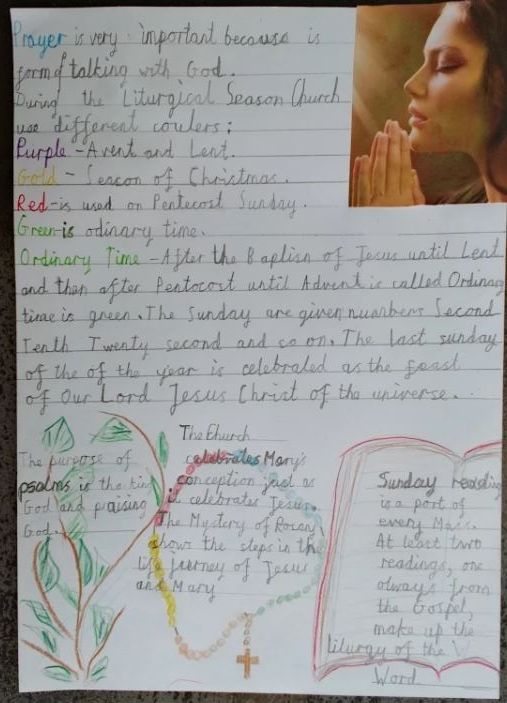 Prayer is very important because is
form of talking with God.
During the Liturgical Season Church
use different coulers:
Purple - Avent and Lent.
Gold - Seacon of Christmas.
Red - is used on Pentecost Sunday.
Green is odinary time.
Ordinary Time - After the Baptism of Jesus until Lent
and then after Pentocost until Advent is called Ordinary
time is green. The Sunday are given nuanbers Second
Tenth Twenty second and so on. The last sunday
of the of the year is celebraled as the feast
of Our Lord Jesus Christ of the universe.
The purpose of
psalms is the
God and praising
God.
The Church
celebrates Mary's
conception just as
it celebrates Jesus.
The Mystery of Rosary
shows the steps in the
life journey of Jesus
and Mary
Sunday reading
is a part of
every Mass.
At least two
readings, one
always from
the Gospel,
make up the
liturgy of the
Word.